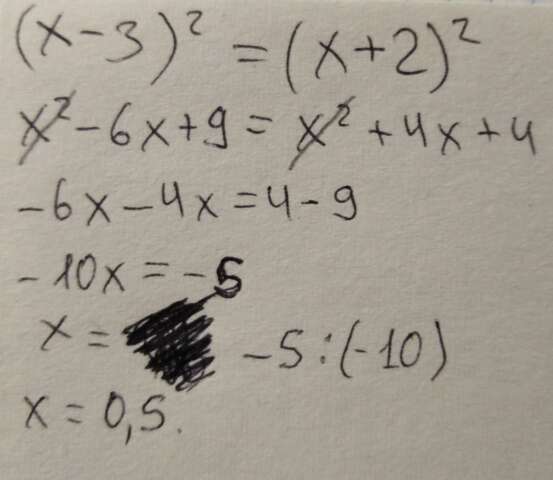 (x-3)² = (x+2)²
x²-6x+9 = x²+4x+4
-6x-4x=4-9
-10x=-5
x = -5:(-10)
x = 0,5.